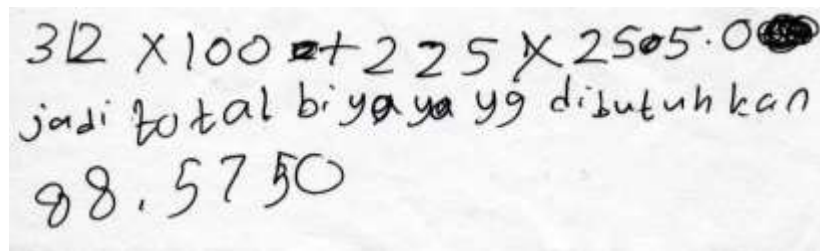 312 X 100 + 225 X 2505.0
jadi total biyaya yg dibutuhkan
88.5750